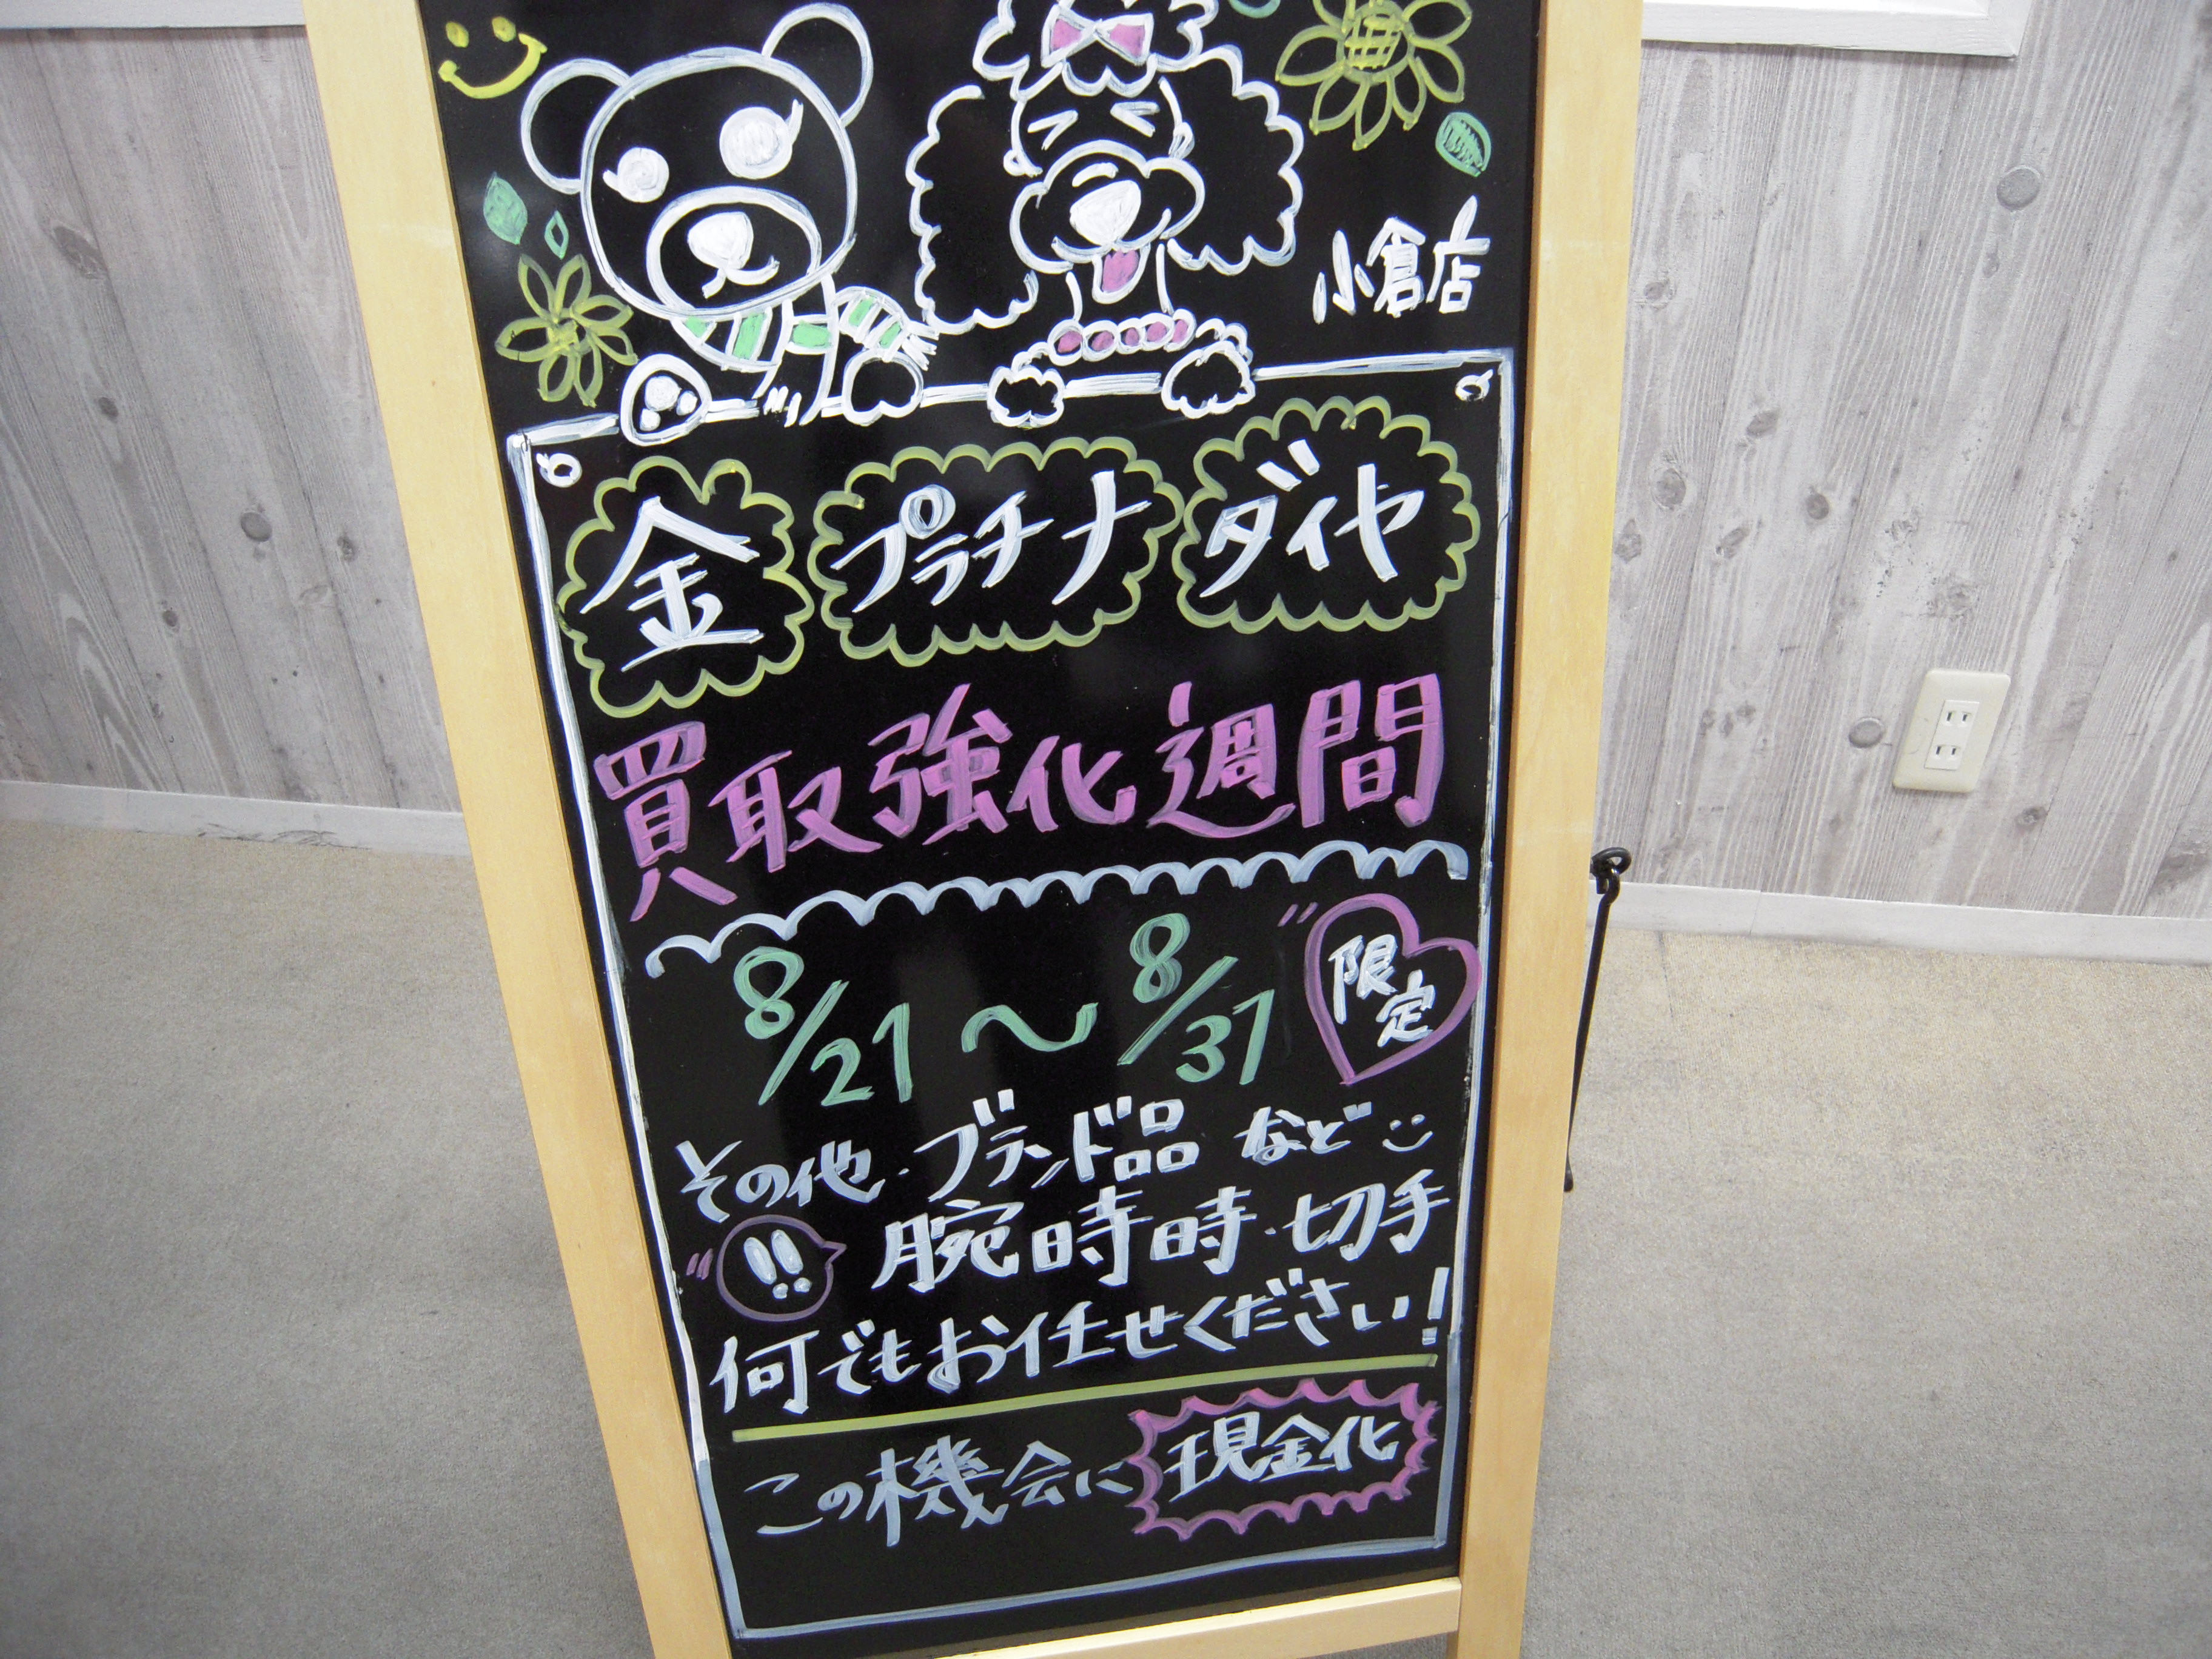 小倉店
金 プラチナ ダイヤ
買取強化週間
8/21～8/31 限定
その他・ブランド品 など
!! 腕時時・切手
何でもお任せください!
この機会に 現金化